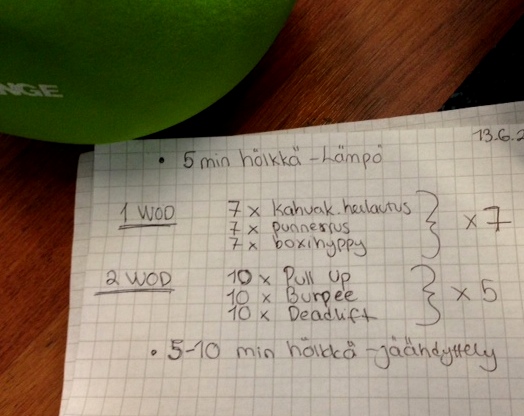 NGE
13.6.2
• 5 min hölkkä - Lämpö
1 WOD 7 x Kahvak.heilautus
7 x punnerrus
7 x boxihyppy
} x 7
2 WOD 10 x Pull Up
10 x Burpee
10 x Deadlift
} x 5
• 5-10 min hölkkä - jäähdyttely